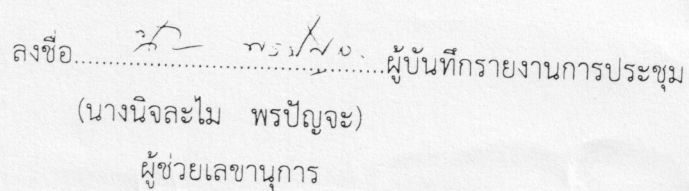 ลงชื่อ....................................................ผู้บันทึกรายงานการประชุม
(นางนิจละไม พรปัญจะ)
ผู้ช่วยเลขานุการ